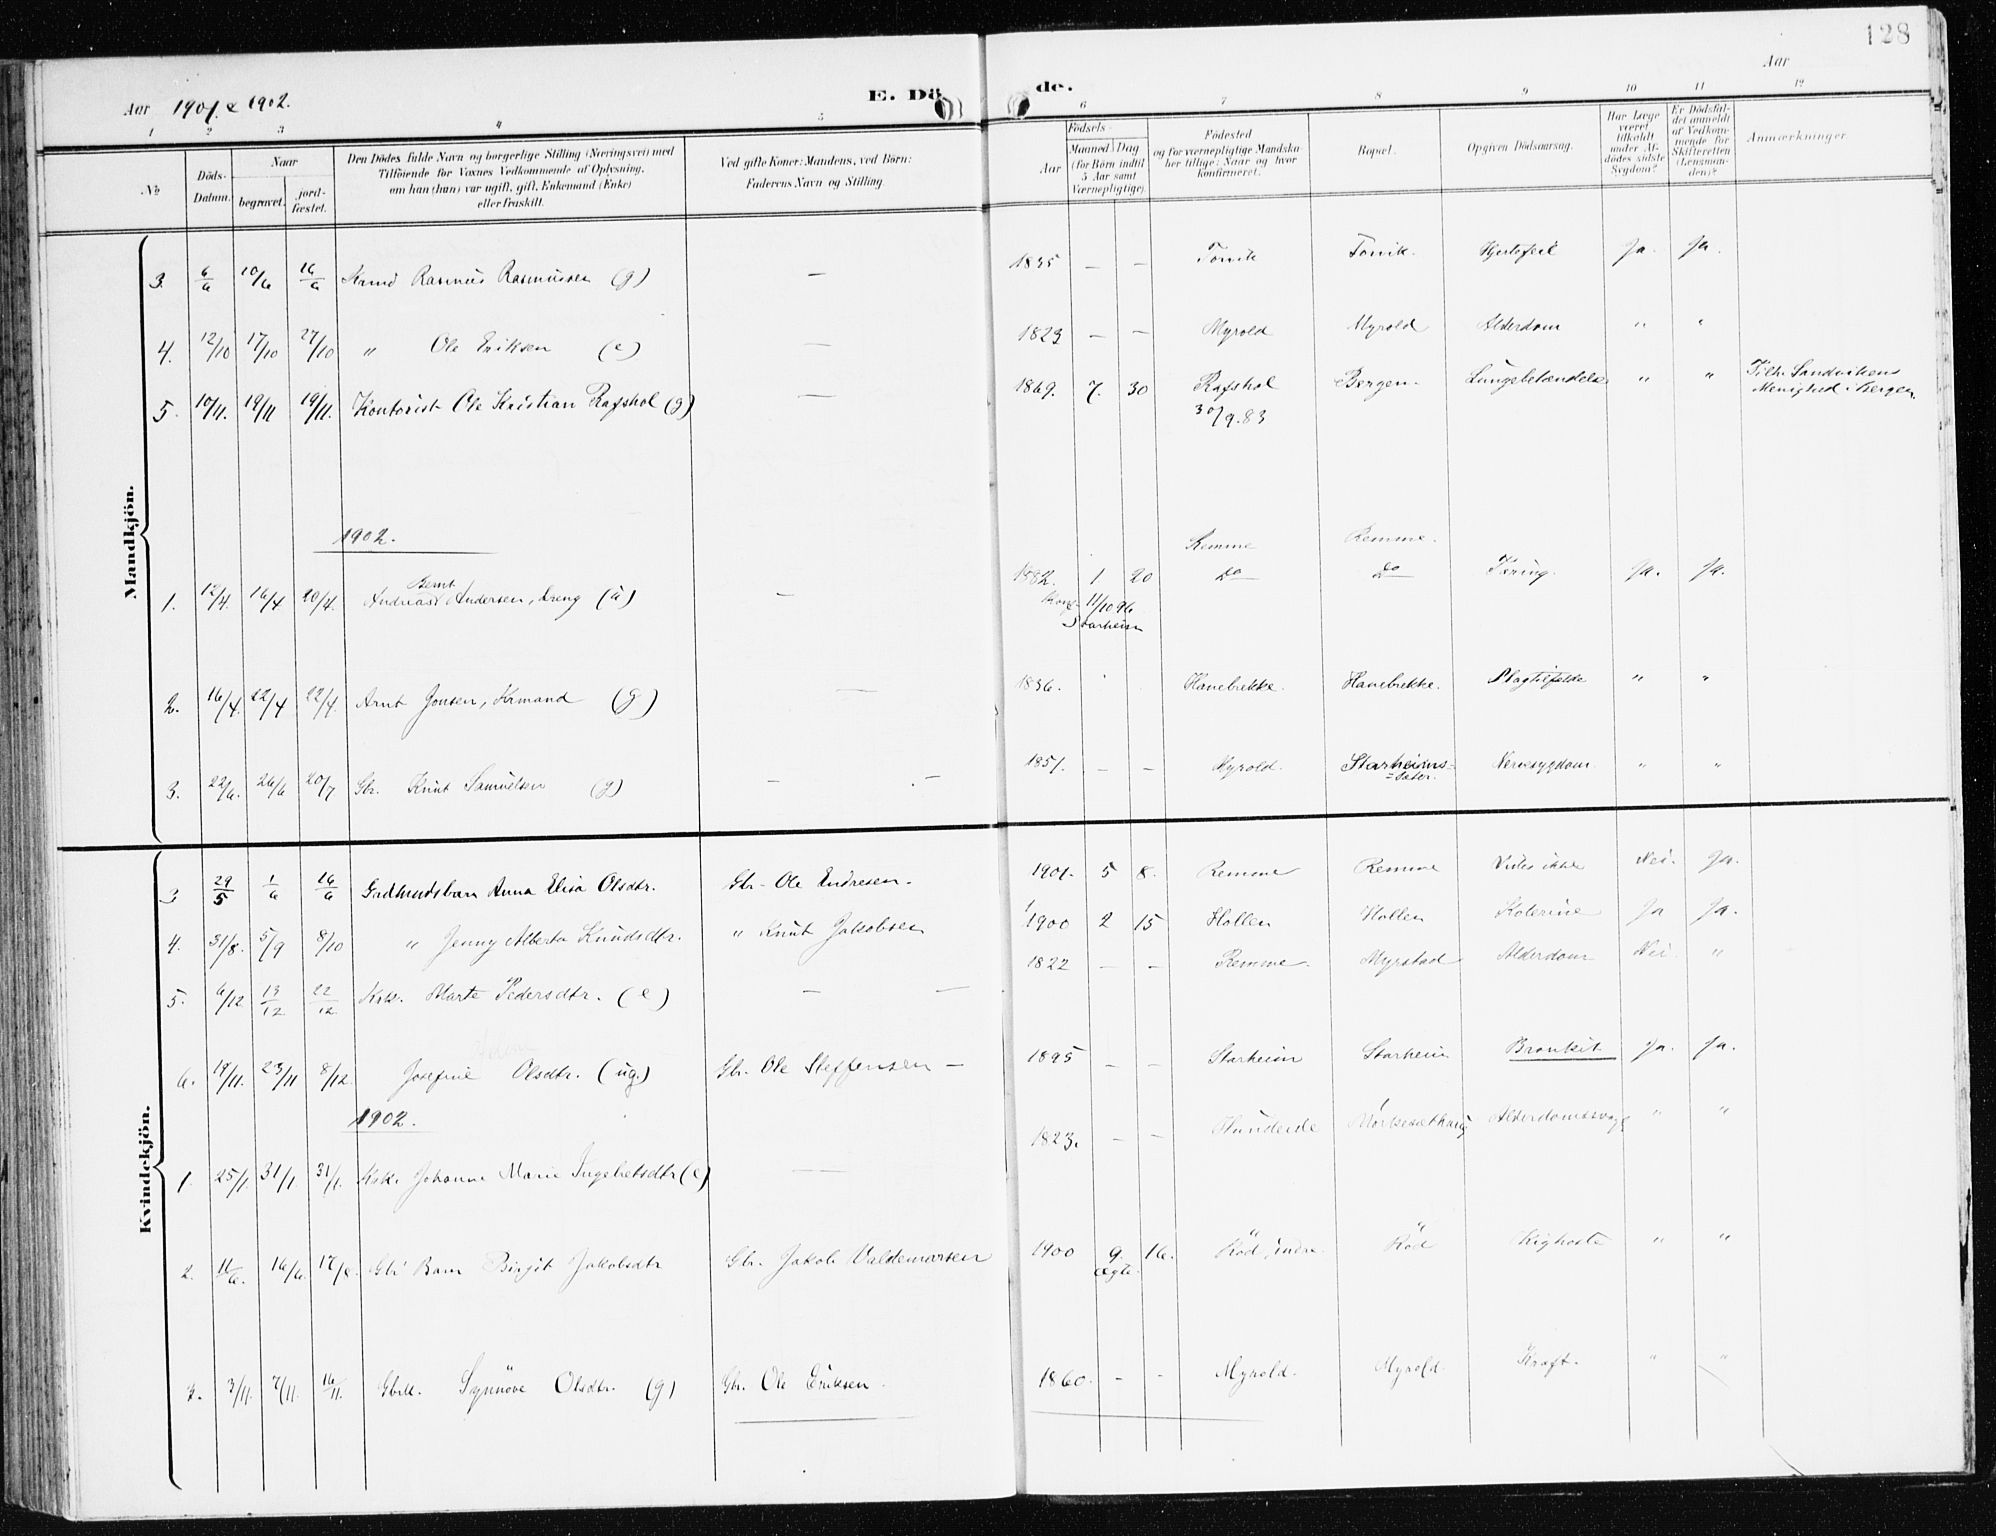 128
Aar 1901 & 1902.
E. Dö
de.
Aar
1 2 3 4 5 6 7 8 9 10 11 12
No
Döds-Datum.
Naar
begravet.
jord-fæstet.
Den Dödes fulde Navn og borgerlige Stilling (Næringsvei) med
Tilföiende for Voxnes Vedkommende af Oplysning,
om han (hun) var ugift, gift, Enkemand (Enke)
eller fraskilt.
Ved gifte Koner: Mandens, ved Börn:
Faderens Navn og Stilling.
Födsels-
Aar
Maaned Dag
(for Börn indtil
5 Aar samt
Værnepligtige).
Födested
og for værnepligtige Mandska-
ber tillige: Naar og hvor
konfirmeret.
Bopæl.
Opgiven Dödsaarsag.
Har Læge
været
tilkaldt
under Af-
dödes sidste
Sygdom?
Er Dödsfal-
det anmeldt
af Vedkom-
mende for
Skifteretten
(Lensman-
den)?
Anmærkninger.
Mandkjön.
3. 6/6 10/6 16/6 Kaarmd Rasmus Rasmussen (g) — 1835 — — Torvik Torvik. Hjertefeil Ja. Ja.
4. 12/10 17/10 27/10 " Ole Eriksen (e) — 1823 — — Myrold Myrold Alderdom " "
5. 10/11. 19/11 19/11. Kontorist Ole Kristian Rafshol (g) — 1869. 7. 30 Rafshol Bergen. Lungebetændelse " " Tilh. Sandvikens
30/9.83 Menighed i Bergen.
1902.
Remme Remme.
Bernt
1. 12/4. 16/4. 20/4. Andreas Andersen, Dreng (u) — 1882. 1 20 Do Do Tæring. Ja. Ja.
Konf. 11/10 96
Starheim
2. 16/4. 22/4 22/4. Arnt Jonsen, Krmand (g) — 1836. Hanebrekke. Hanebrekke. " "
3. 22/6. 26/6 20/7 Gbr. Knut Samuelsen (g) — — 1851. — — Myrold. Starheims= Nervesygdom. " "
=sæter.
Kvindekjön.
3 29/5 1/6 16/6 Grdmandsbarn Anna Elisa Olsdtr. Gbr. Ole Andresen. 1901. 5 8. Remme Remme Vides ikke Nei. Ja.
4. 31/8. 5/9 8/10 " Jenny Alberta Knudsdtr. " Knut Jakobsen 1900 2 15 Hollen Hollen Kolerine Ja Ja.
5. 6/12 13/12 22/12 Krk. Marte Pedersdtr. (e) — — 1822 — — Remme. Myrstad Alderdom Nei. "
6. 19/11. 23/11 8/12. Josefine Olsdtr. (ug.) Gbr. Ole Steffensen — 1895 — — Starheim Starheim Bronkit Ja. Ja.
1902.
1. 25/1. 31/1. 31/1. Krk. Johanne Marie Ingebretsdtr (e) — 1823. — — Hundeide " "
2. 11/6. 16/6. 17/6. Gbr Barn Birgit Jakobsdtr Gbr. Jakob Valdemarsen 1900 9. 16. Röd, indre. Röd Kighoste " "
ægte.
3. 3/11. 7/11. 16/11. Gbrk. Synnöve Olsdtr. (g) Gbr. Ole Eriksen. 1860. - - Myrold. Myrold. Kræft. " "